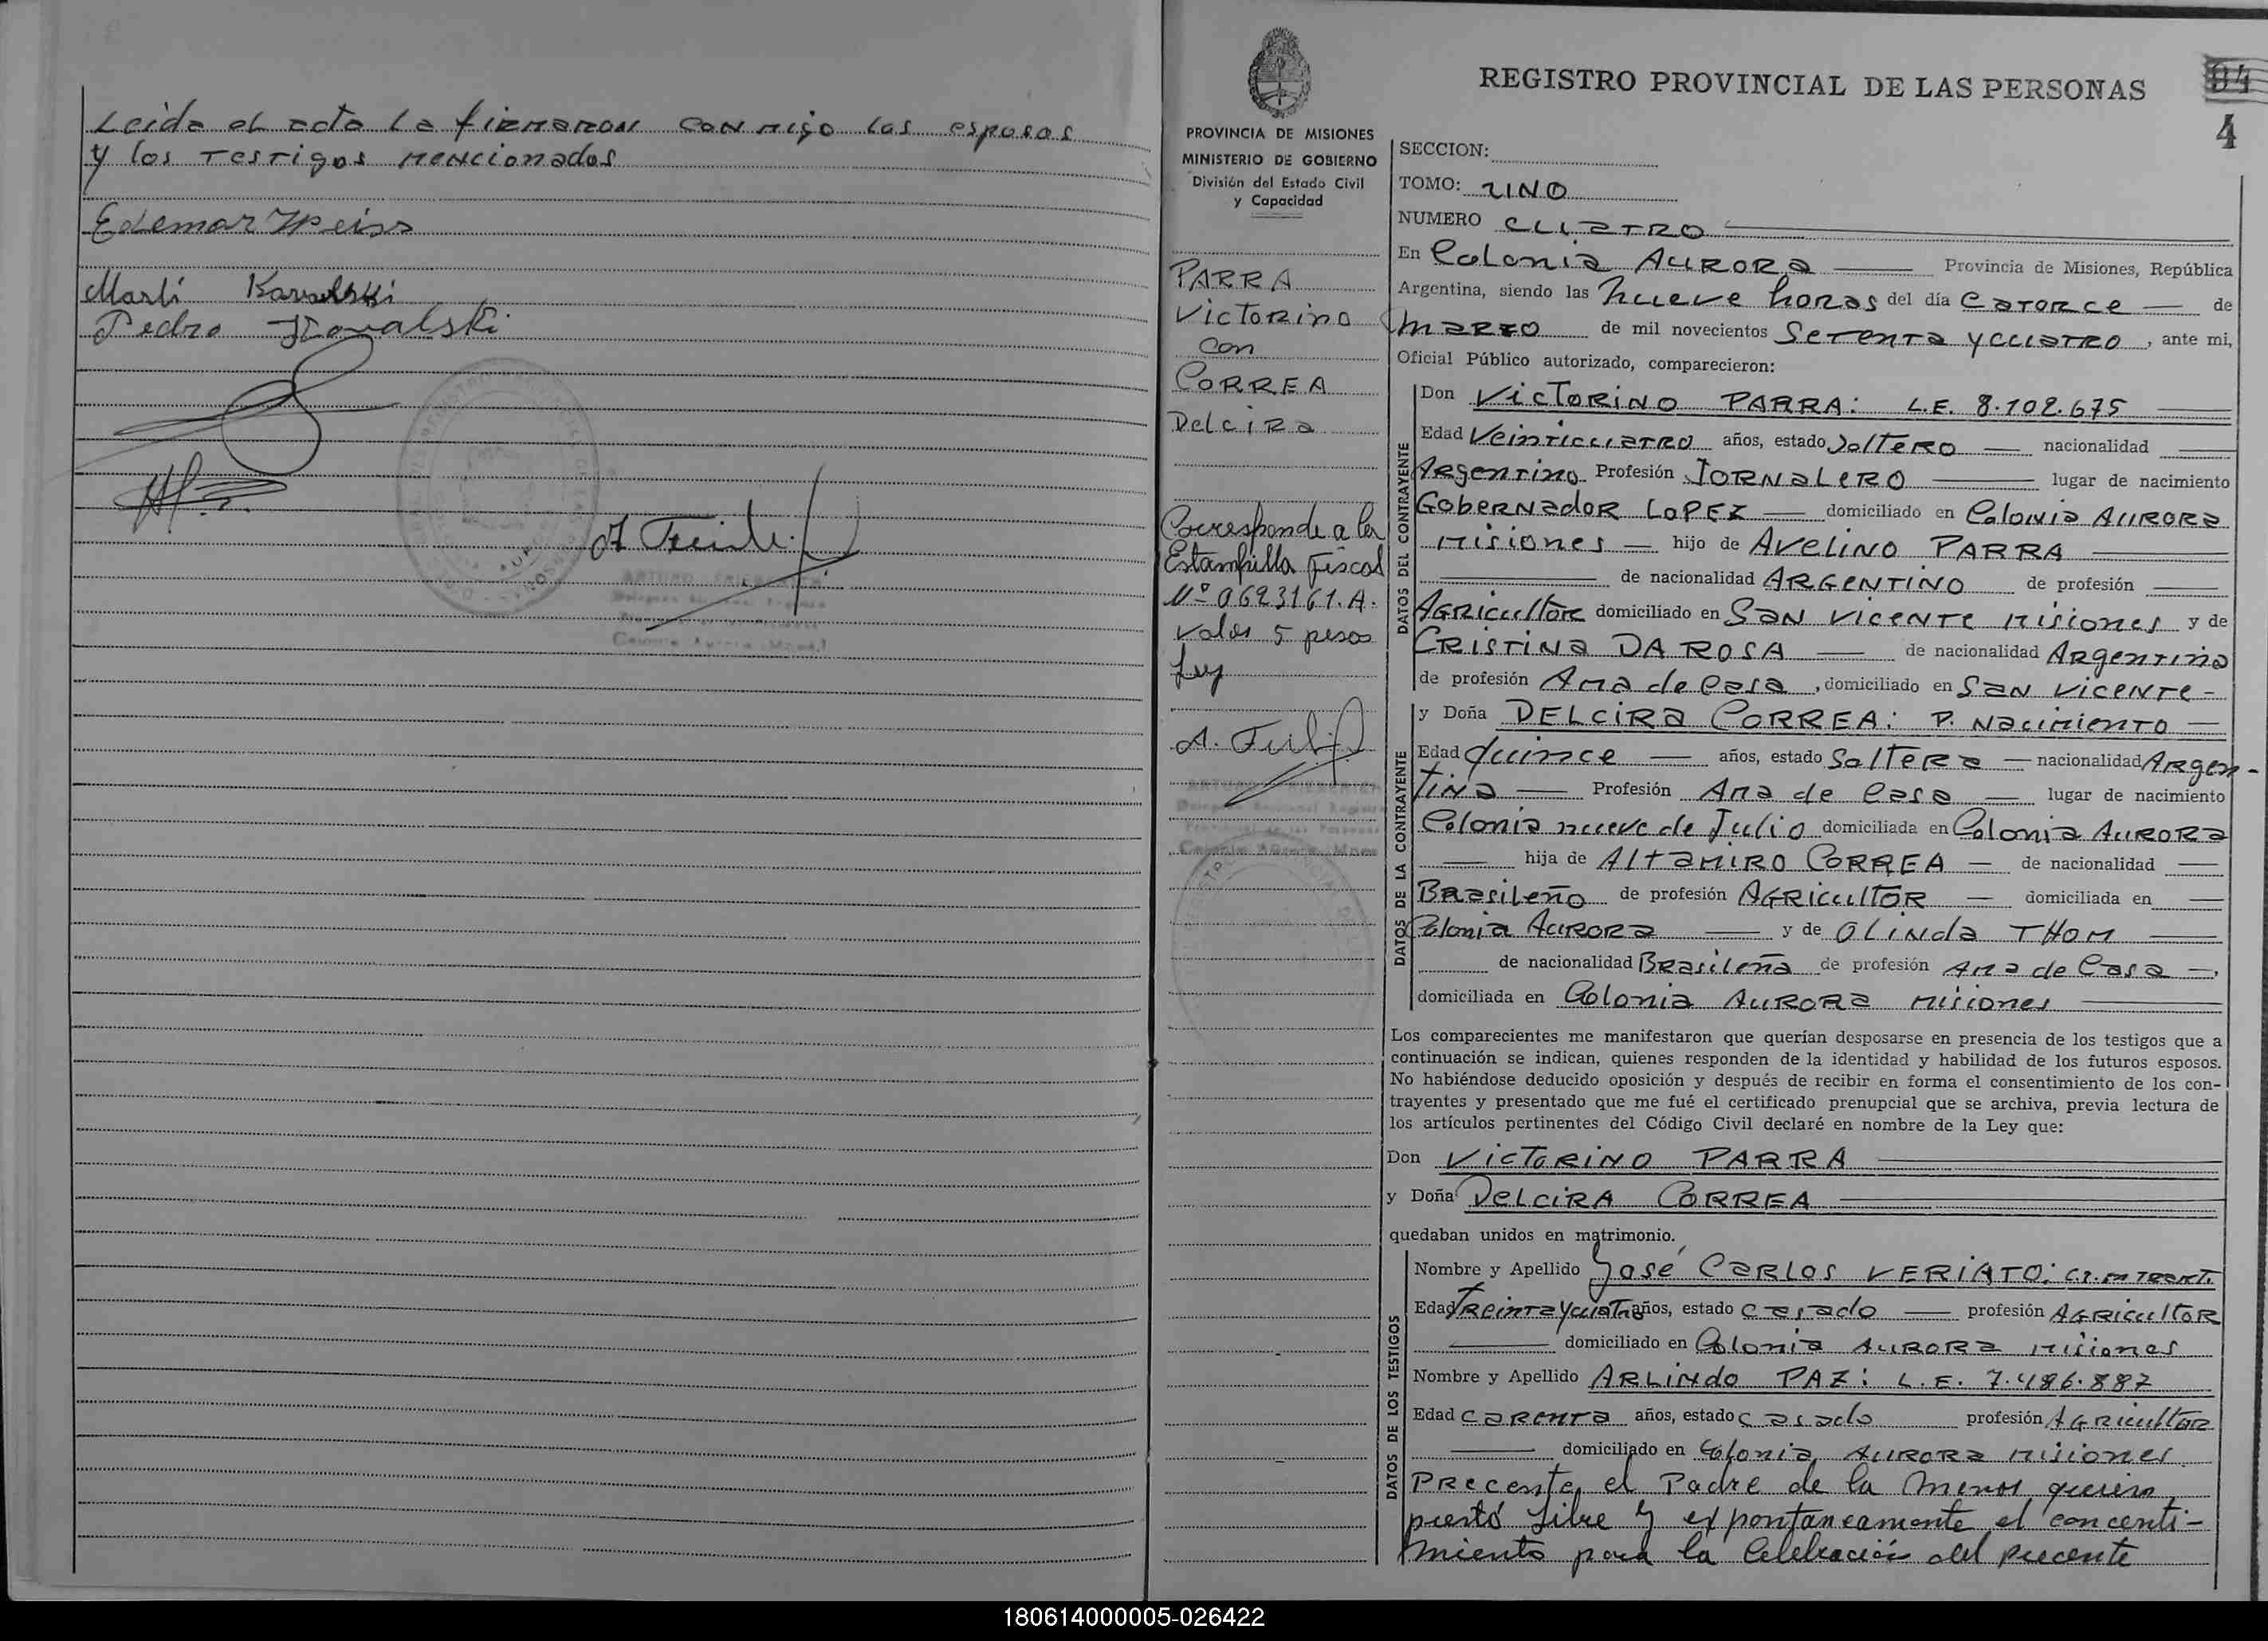 Leida el acta la firmaron conmigo los esposos
y los testigos mencionados
Edemar Weiss
Marli Kavalski
Pedro Kovalski
A. Freide
PROVINCIA DE MISIONES
MINISTERIO DE GOBIERNO
División del Estado Civil
y Capacidad
PARRA
Victorino
con
CORREA
Delcira
Corresponde a la
Estampilla Fiscal
Nº 0623161.A.
valor 5 pesos
Ley
REGISTRO PROVINCIAL DE LAS PERSONAS
84
4
SECCION:
TOMO: UNO
NUMERO CUATRO
En Colonia AURORA Provincia de Misiones, República
Argentina, siendo las nueve horas del día catorce de
marzo de mil novecientos setenta y cuatro, ante mi,
Oficial Público autorizado, comparecieron:
DATOS DEL CONTRAYENTE
Don Victorino PARRA: L.E. 8.102.675
Edad Veinticuatro años, estado Soltero nacionalidad
Argentino Profesión JORNALERO lugar de nacimiento
Gobernador LOPEZ domiciliado en Colonia AURORA
Misiones hijo de Avelino PARRA
de nacionalidad ARGENTINO de profesión
AGRicultor domiciliado en SAN VICENTE Misiones y de
CRISTINA DA ROSA de nacionalidad Argentina
de profesión Ama de Casa, domiciliado en SAN VICENTE -
DATOS DE LA CONTRAYENTE
y Doña DELCIRA CORREA: P. Nacimiento
Edad quince años, estado Soltera nacionalidad Argen-
tina Profesión Ama de Casa lugar de nacimiento
Colonia nueve de Julio domiciliada en Colonia AURORA
hija de ALTAMIRO CORREA de nacionalidad
Brasileño de profesión AGRicultor domiciliada en
Colonia AURORA y de OLINda THOM
de nacionalidad Brasileña de profesión Ama de Casa,
domiciliada en Colonia AURORA Misiones
Los comparecientes me manifestaron que querían desposarse en presencia de los testigos que a
continuación se indican, quienes responden de la identidad y habilidad de los futuros esposos.
No habiéndose deducido oposición y después de recibir en forma el consentimiento de los con-
trayentes y presentado que me fué el certificado prenupcial que se archiva, previa lectura de
los artículos pertinentes del Código Civil declaré en nombre de la Ley que:
Don VICTORINO PARRA
y Doña DELCIRA CORREA
quedaban unidos en matrimonio.
DATOS DE LOS TESTIGOS
Nombre y Apellido José CARLOS VERIATO: C.I. en TRAMT.
Edad Treinta y cuatro años, estado casado profesión AGRicultor
domiciliado en Colonia AURORA Misiones
Nombre y Apellido ARLINdo PAZ: L.E. 7.486.887
Edad carenta años, estado casado profesión AGRicultor
domiciliado en Colonia AURORA Misiones
Precente el Padre de la menor quien
prestó Libre y expontaneamente el concenti-
miento para la Celebración del precente
180614000005-026422